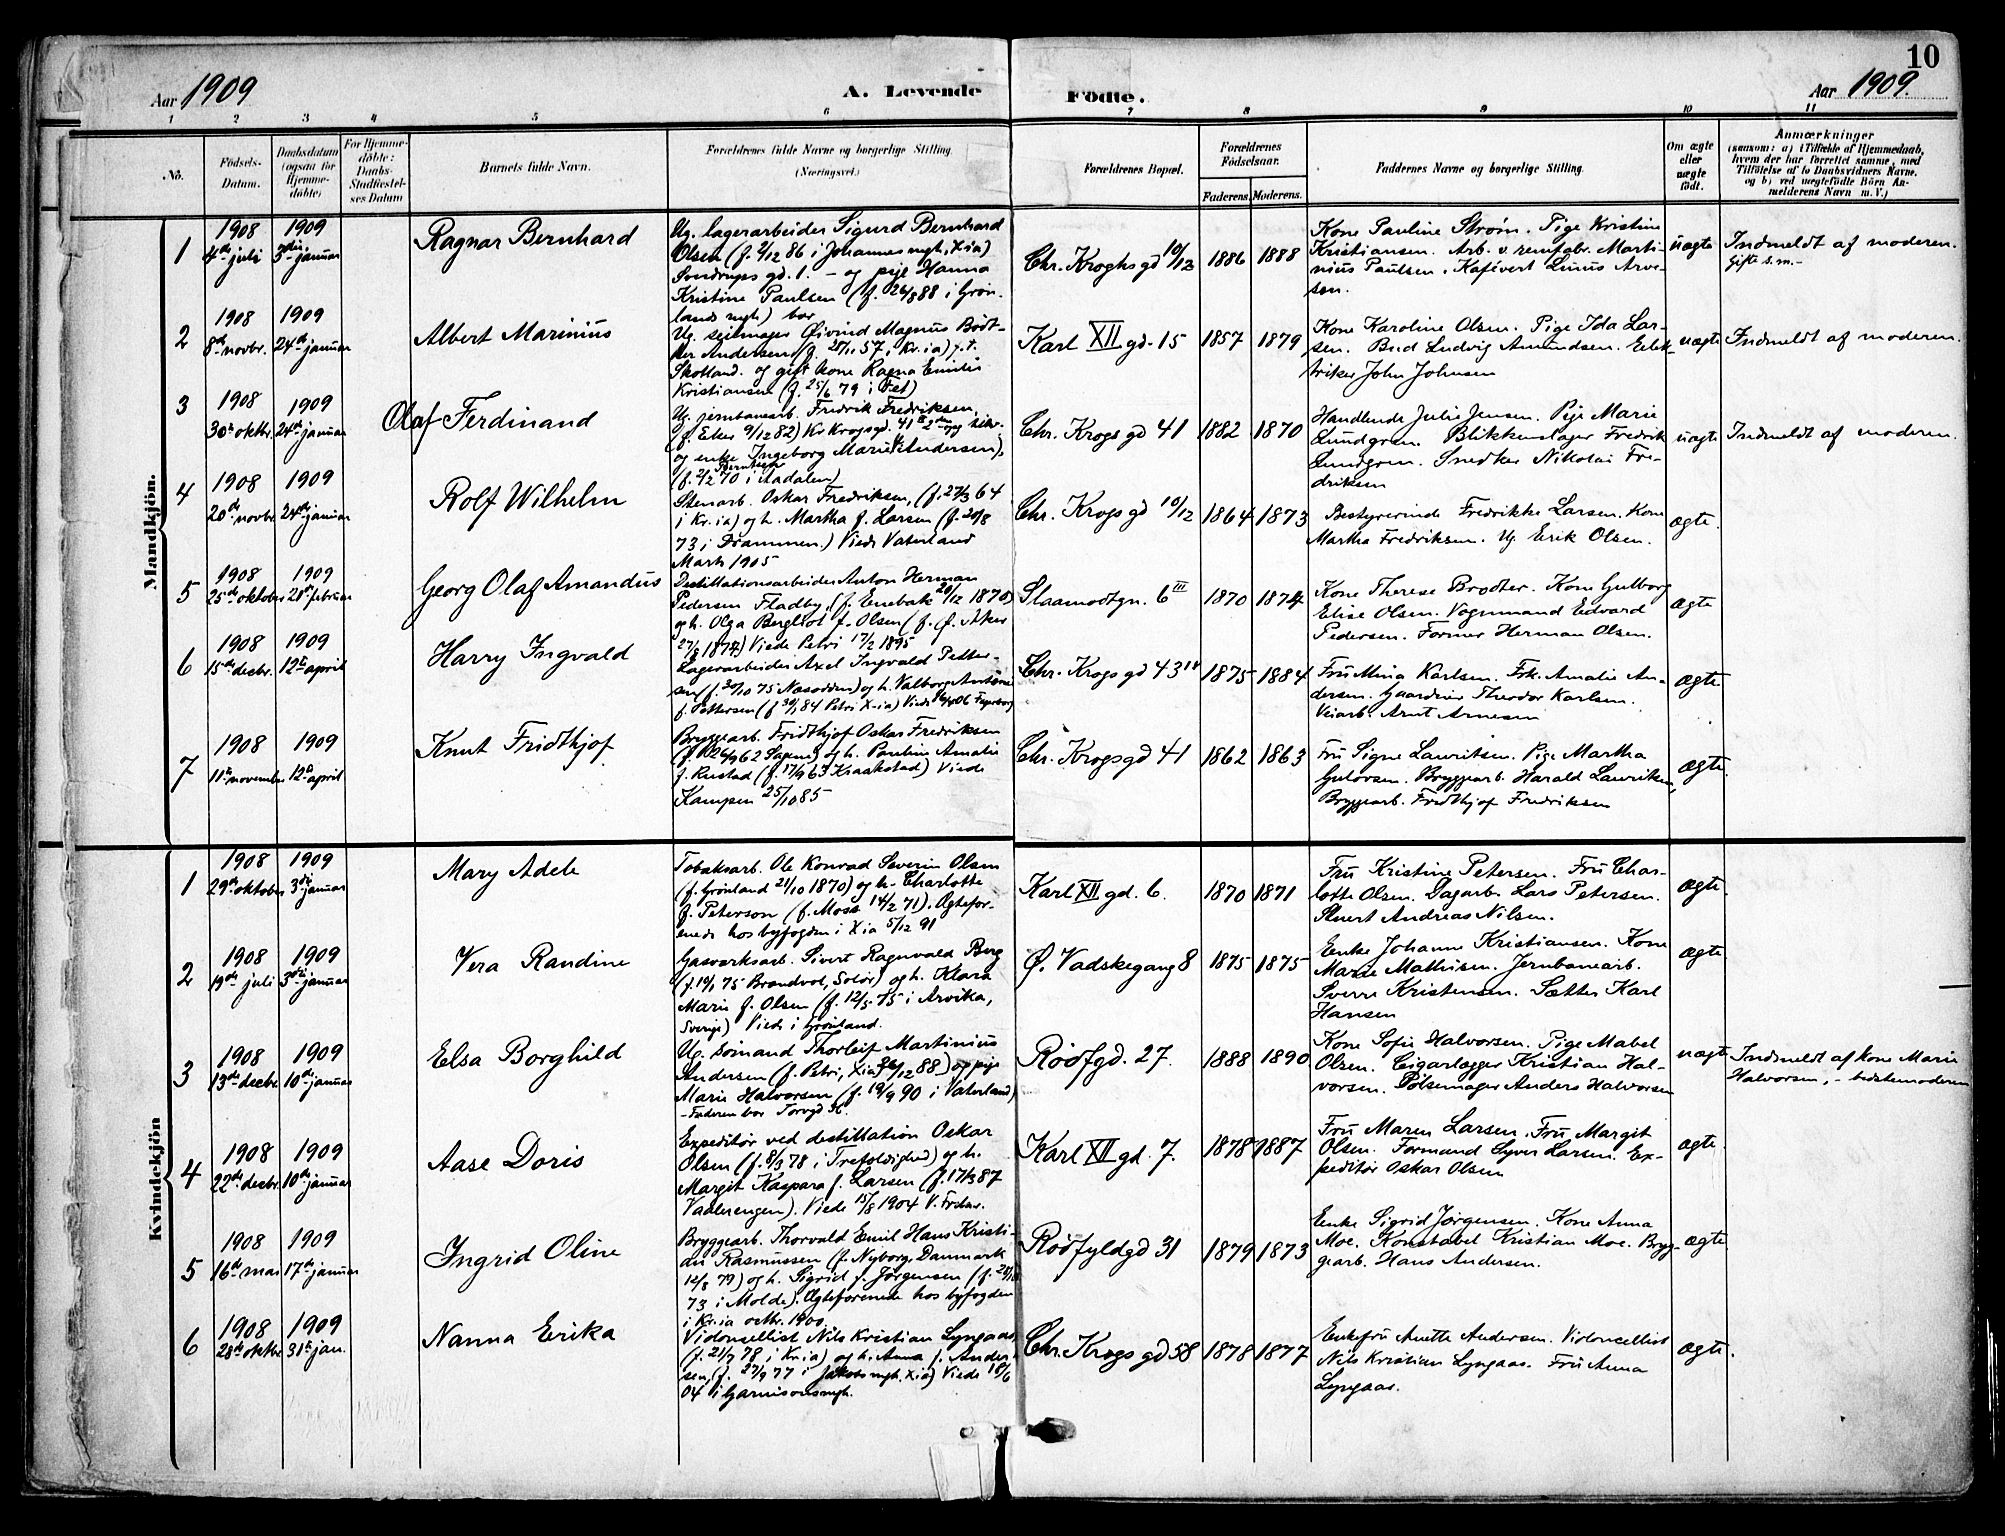 10
Aar 1909
A. Levende
Födte.
Aar 1909.
1 2 3 4 5 6 7 8 9 10 11
No.
Födsels-Datum.
Daabsdatum (ogsaa for Hjemme-döbte)
For Hjemme-döbte: Daabs-Stadfæstel-ses Datum
Barnets fulde Navn.
Forældrenes fulde Navne og borgerlige Stilling
(Næringsvei.)
Forældrenes Bopæl.
Forældrenes Födselsaar.
Faderens. Moderens.
Faddernes Navne og borgerlige Stilling.
Om ægte eller uægte født.
Anmærkninger
(saasom: a) i Tilfælde af Hjemmedaab,
hvem der har forrettet samme, med
Tilföielse af to Daabsvidners Navne.
og b) ved uægtefödte Börn An-
melderens Navn m. V.)
Mandkjön.
1
1908
4de juli
1909
3die januar
Ragnar Bernhard
Ug. lagerarbeider Sigurd Bernhard
Olsen (f. 2/12 86 i Johannes mgh, X.ia)
Søndrupsgd. 1. – og pige Hanna
Kristine Paulsen (f. 26/8 88 i Grøn-
lands mgh) bor
Chr. Kroghs gd 10/12
1886
1888
Kone Pauline Strøm. Pige Kristine
Kristiansen. Arb. v. remfabr. Marti-
nius Paulsen. Kafévert Linus Arve-
sen.
uægte
Indmeldt af moderen.
Gifte s.m.-
2
1908
8de novbr.
1909
24de januar
Albert Marinius
Ug. seilmager Øivind Magnus Bødt-
ker Andersen (f. 28/11 57, i Kr.ia) f.t.
Skotland. og gift kone Ragna Emilie
Kristiansen (f. 25/6 79 i Fet)
Karl XII gd. 15
1857
1879
Kone Karoline Olsen. Pige Ida Lar-
sen. Bud Ludvig Amundsen. Elek-
triker John Johnsen
uægte
Indmeldt af moderen.
3
1908
30te oktbr.
1909
24de januar
Olaf Ferdinand
Ug. jernbanearb. Fredrik Fredriksen,
(f. Eker 9/12 82) Kr Krogsgd. 41
og enke Ingeborg Marie Andersen,
Berntsen
(f. 2/2 70 i Aadalen)
Chr. Krogs gd 41
1882
1870
Handlende Julie Jensen. Pige Marie
Lundgren. Blikkenslager Fredrik
Lundgren. Snedker Nikolai Fre-
driksen
uægte
Indmeldt af moderen.
4
1908
20de novbr.
1909
24de januar
Rolf Wilhelm
Stenarb. Oskar Fredriksen, (f. 27/3 64
i Kr.ia) og h. Martha f. Larsen (f. 20/8
73 i Drammen.) Viede Vaterland
Marts 1905
Chr. Krogs gd 10/12
1864
1873
Bestyrerinde Fredrikke Larsen. Kone
Martha Fredriksen. Ug. Erik Olsen.
ægte.
5
1908
25de oktober
1909
28de februar
Georg Olaf Amandus
Destillationsarbeider Anton Herman
Pedersen Fladby, (f. Enebak 20/12 1870)
og h. Olga Bergliot f. Olsen (f. Ø. Aker
27/8 1874) Viede Petri 17/2 1895
Slaamotgn. 6 III
1870
1874
Kone Therese Brodter. Kone Gulborg
Elise Olsen. Vognmand Edvard
Pedersen. Former Herman Olsen.
ægte
6
1908
15de decbr.
1909
12te april
Harry Ingvald
Lagerarbeider Axel Ingvald Petter-
sen (f. 30/10 75 Næsodden) og h. Valborg Antonie
f. Pettersen (f. 30/1 84 Petri X-ia) Viede 16/4 06 Fagerborg
Chr. Krogs gd 43 IV
1875
1884
Fru Mina Karlsen. Frk. Amalie An-
dersen. Gaardeier Theodor Karlsen.
Veiarb. Arnt Arnesen
ægte
7
1908
11te november
1909
12te april
Knut Fridthjof
Bryggearb. Fridthjof Oskar Fredriksen
(f. 26/9 62 Sagene) og h. Pauline Amalie
f. Rustad (f. 17/9 63 Kraakstad) Viede
Kampen 25/10 85
Chr. Krogs gd 41
1862
1863
Fru Signe Lauritsen. Pige Martha
Gulovsen. Bryggearb. Harald Lauritsen,
Bryggearb. Fridthjof Fredriksen
ægte.
Kvindekjön
1
1908
29de oktober
1909
3die januar
Mary Adele
Tobaksarb. Ole Konrad Severin Olsen
(f. Grønland 21/10 1870) og h. Charlotte
f. Peterson (f. Moss 14/2 71). Ægtefor-
enede hos byfogden i X.ia 5/12 91
Karl XII gd. 6.
1870
1871
Fru Kristine Petersen. Fru Char-
lotte Olsen. Dagarb. Lars Petersen.
Stuert Andreas Nilsen.
ægte.
2
1908
19de juli
1909
3die januar
Vera Randine
Gasværksarb. Sivert Ragnvald Berg
(f. 19/1 75 Brandvol, Solør) og h. Klara
Marie f. Olsen (f. 12/5 75 i Arvika,
Sverige) Viede i Grønland.
Ø. Vadskegang 8
1875
1875
Enke Johanne Kristiansen. Kone
Marie Mathisen. Jernbanearb.
Sverre Kristensen. Sætter Karl
Hansen
ægte.
3
1908
13de decbr
1909
10de januar
Elsa Borghild
Ug. sømand Thorleif Martinius
Andersen (f. Petri, X.ia 26/12 88) og pige
Marie Halvorsen (f. 19/9 90 i Vaterland)
– Faderen bor Torvgd 36.
Rødfgd. 27.
1888
1890
Kone Sofie Halvorsen. Pige Mabel
Olsen. Cigarlægger Kristian Hal-
vorsen. Pølsemager Anders Halvorsen
uægte
Indmeldt af kone Marie
Halvorsen, – bedstemoderen
4
1908
22de decbr.
1909
10de januar
Aase Doris
Expeditør ved destillation Oskar
Olsen (f. 8/3 78 i Trefoldighed) og h.
Margit Kaspara f. Larsen (f. 17/3 87
Vaalerengen). Viede 15/8 1904 V. Frelser.
Karl XII gd. 7.
1878
1887
Fru Maren Larsen. Fru Margit
Olsen. Formand Syver Larsen. Ex-
peditør Oskar Olsen
ægte.
5
1908
16de mai
1909
17de januar
Ingrid Oline
Bryggearb. Thorvald Emil Hans Kristi-
an Rasmussen (f. Nyborg, Danmark
12/8 79) og h. Sigrid f. Jørgensen (f. 28/10
73 i Molde). Ægteforenede hos byfogden
i Kr.ia octbr. 1900.
Rødfyldgd 31
1879
1873
Enke Sigrid Jørgensen. Kone Anna
Moe. Konstabel Kristian Moe. Bryg-
gearb. Hans Andersen.
ægte.
6
1908
28de oktbr
1909
31te jan.
Nanna Erika
Violoncellist Nils Kristian Lyngaas,
(f. 21/7 78 i Kr.ia) og h. Anna f. Ander-
sen, (f. 27/9 77 i Jakobs mgh. X.ia) Viede 18/6
04 i Garnisonsmgh.
Chr. Krogs gd 58
1878
1877
Enkefru Anette Andersen. Violoncellist
Nils Kristian Lyngaas. Fru Anna
Lyngaas.
ægte.